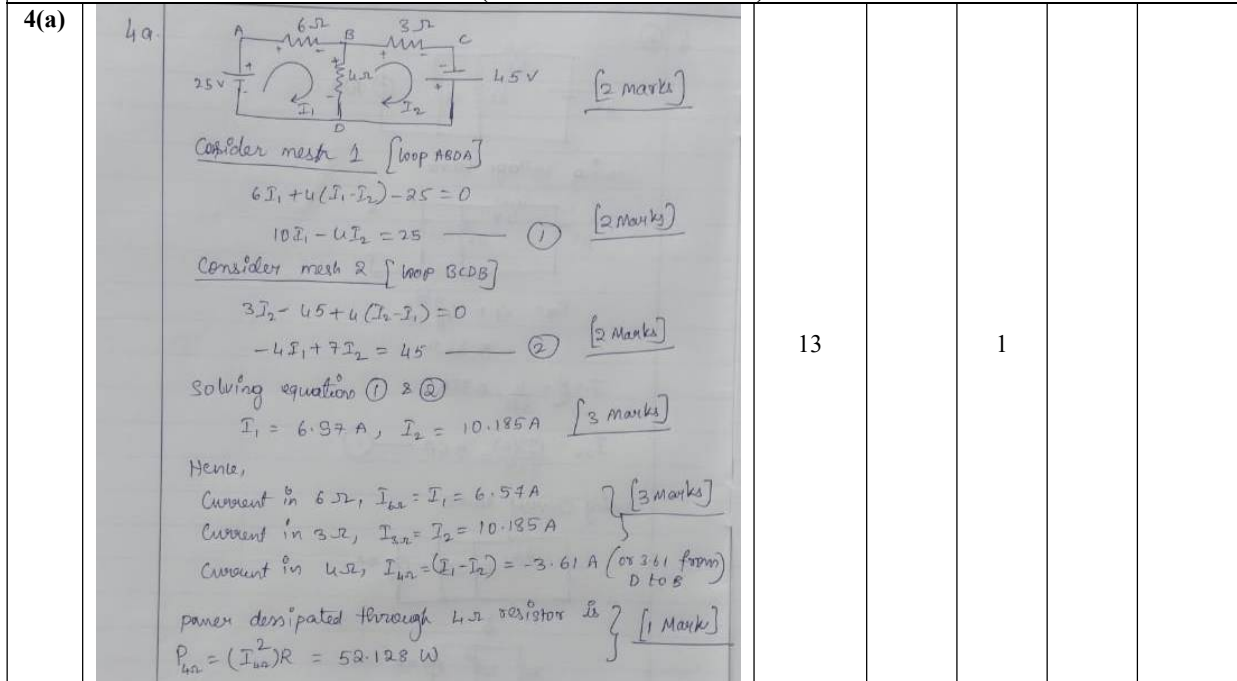 4(a)
4a.
6Ω 3Ω
A B C
25V + - 4Ω 45V
I₁ I₂
D
[2 marks]
Cosider mesh 1 [loop ABDA]
6I₁ + 4(I₁-I₂) - 25 = 0
10I₁ - 4I₂ = 25 —— ①
[2 marks]
Consider mesh 2 [loop BCDB]
3I₂ - 45 + 4(I₂-I₁) = 0
-4I₁ + 7I₂ = 45 —— ②
[2 Marks]
13
1
Solving equation ① & ②
I₁ = 6.97 A, I₂ = 10.185A [3 marks]
Hence,
Current in 6Ω, I₆Ω = I₁ = 6.57A
Current in 3Ω, I₃Ω = I₂ = 10.185A
[3 marks]
Current in 4Ω, I₄Ω = (I₁-I₂) = -3.61 A (or 3.61 from D to B)
power dessipated through 4Ω resistor is
P₄Ω = (I₄Ω²)R = 52.128 W
[1 Mark]